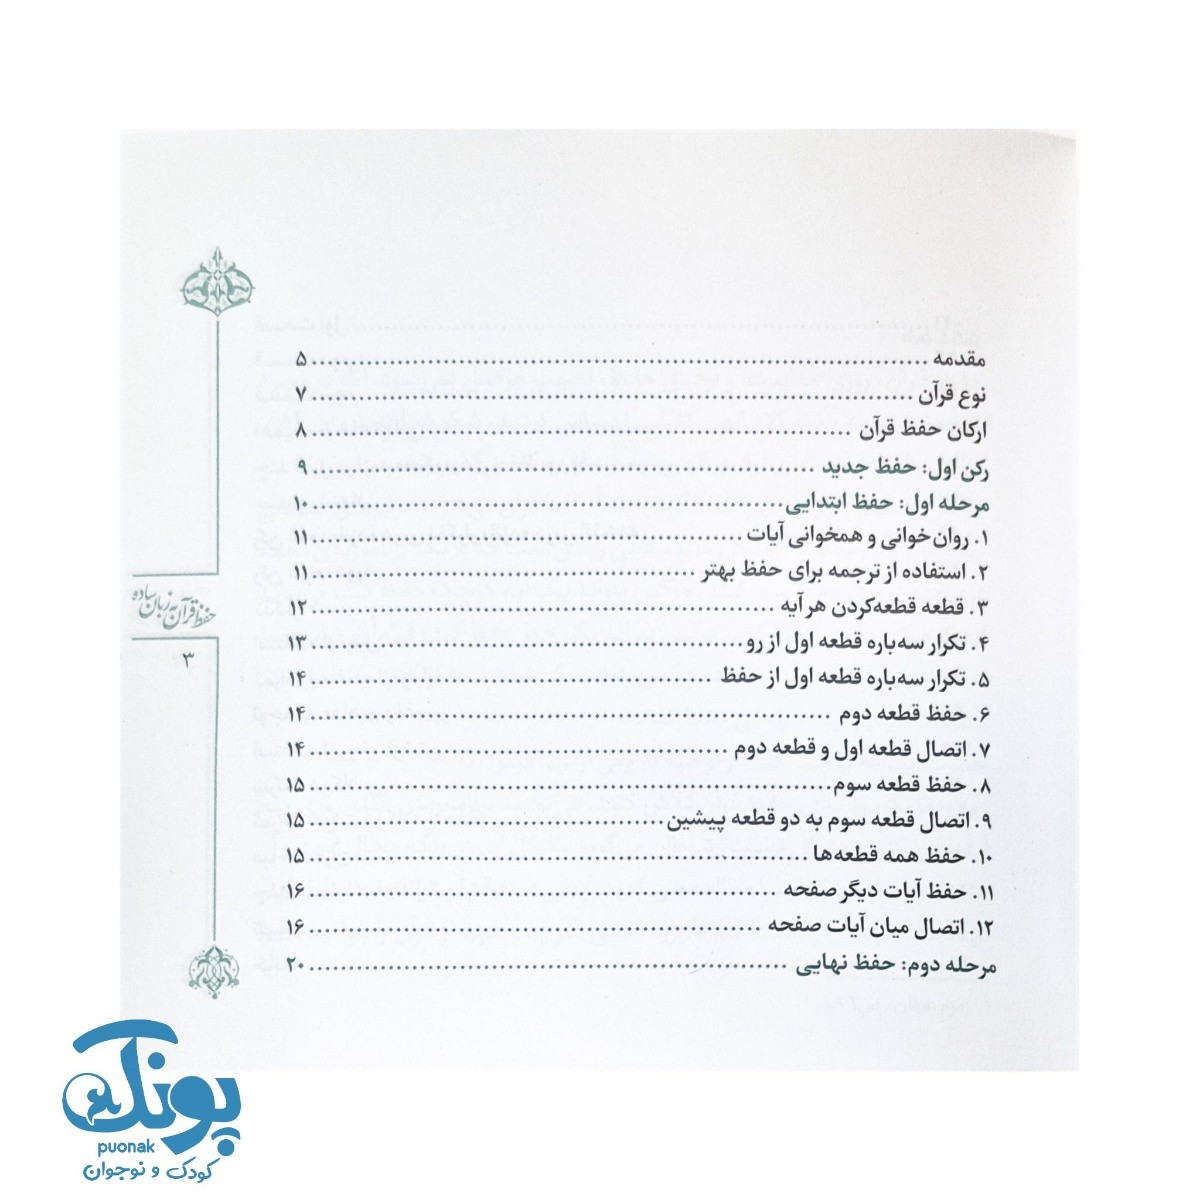 مقدمه ........ ۵
نوع قرآن ........ ۷
ارکان حفظ قرآن ........ ۸
رکن اول: حفظ جدید ........ ۹
مرحله اول: حفظ ابتدایی ........ ۱۰
۱. روان‌خوانی و همخوانی آیات ........ ۱۱
۲. استفاده از ترجمه برای حفظ بهتر ........ ۱۱
۳. قطعه قطعه‌کردن هر آیه ........ ۱۲
۴. تکرار سه‌باره قطعه اول از رو ........ ۱۳
۵. تکرار سه‌باره قطعه اول از حفظ ........ ۱۴
۶. حفظ قطعه دوم ........ ۱۴
۷. اتصال قطعه اول و قطعه دوم ........ ۱۴
۸. حفظ قطعه سوم ........ ۱۵
۹. اتصال قطعه سوم به دو قطعه پیشین ........ ۱۵
۱۰. حفظ همه قطعه‌ها ........ ۱۵
۱۱. حفظ آیات دیگر صفحه ........ ۱۶
۱۲. اتصال میان آیات صفحه ........ ۱۶
مرحله دوم: حفظ نهایی ........ ۲۰
حفظ قرآن به زبان ساده
۳
پونک
puonak
کودک و نوجوان